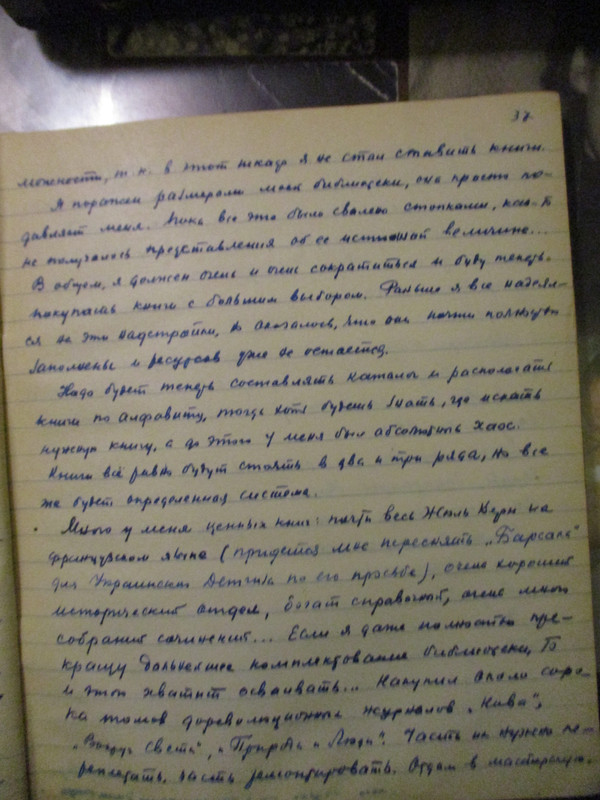 37
можности, т. к. в этот шкаф я не стал ставить книги.
Я поражен размерами моей библиотеки, она просто по-
давляет меня. Пока все это было свалено стопками, как-то
не получалось представления об ее истинной величине...
В общем, я должен очень и очень сократиться и буду теперь
покупать книги с большим выбором. Раньше я все надеял-
ся на эти надстройки, но оказалось, что они почти полностью
заполнены и ресурсов уже не остается.
Надо будет теперь составлять каталог и располагать
книги по алфавиту, тогда хотя будешь знать, где искать
нужную книгу, а до этого у меня был абсолютный хаос.
Книги всё равно будут стоять в два и три ряда, но все
же будет определенная система.
Много у меня ценных книг: почти весь Жюль Верн на
французском языке (придется мне переснять „Барсак"
для Украинского Детгиза по его просьбе), очень хороший
исторический отдел, богат справочный, очень много
собраний сочинений... Если я даже полностью пре-
кращу дальнейшее комплектование библиотеки, то
и этого хватит осваивать... Накупил около соро-
ка томов дореволюционных журналов „Нива",
„Вокруг Света", „Природа и Люди". Часть их нужно пе-
реплетать, часть ремонтировать. Отдам в мастерскую.